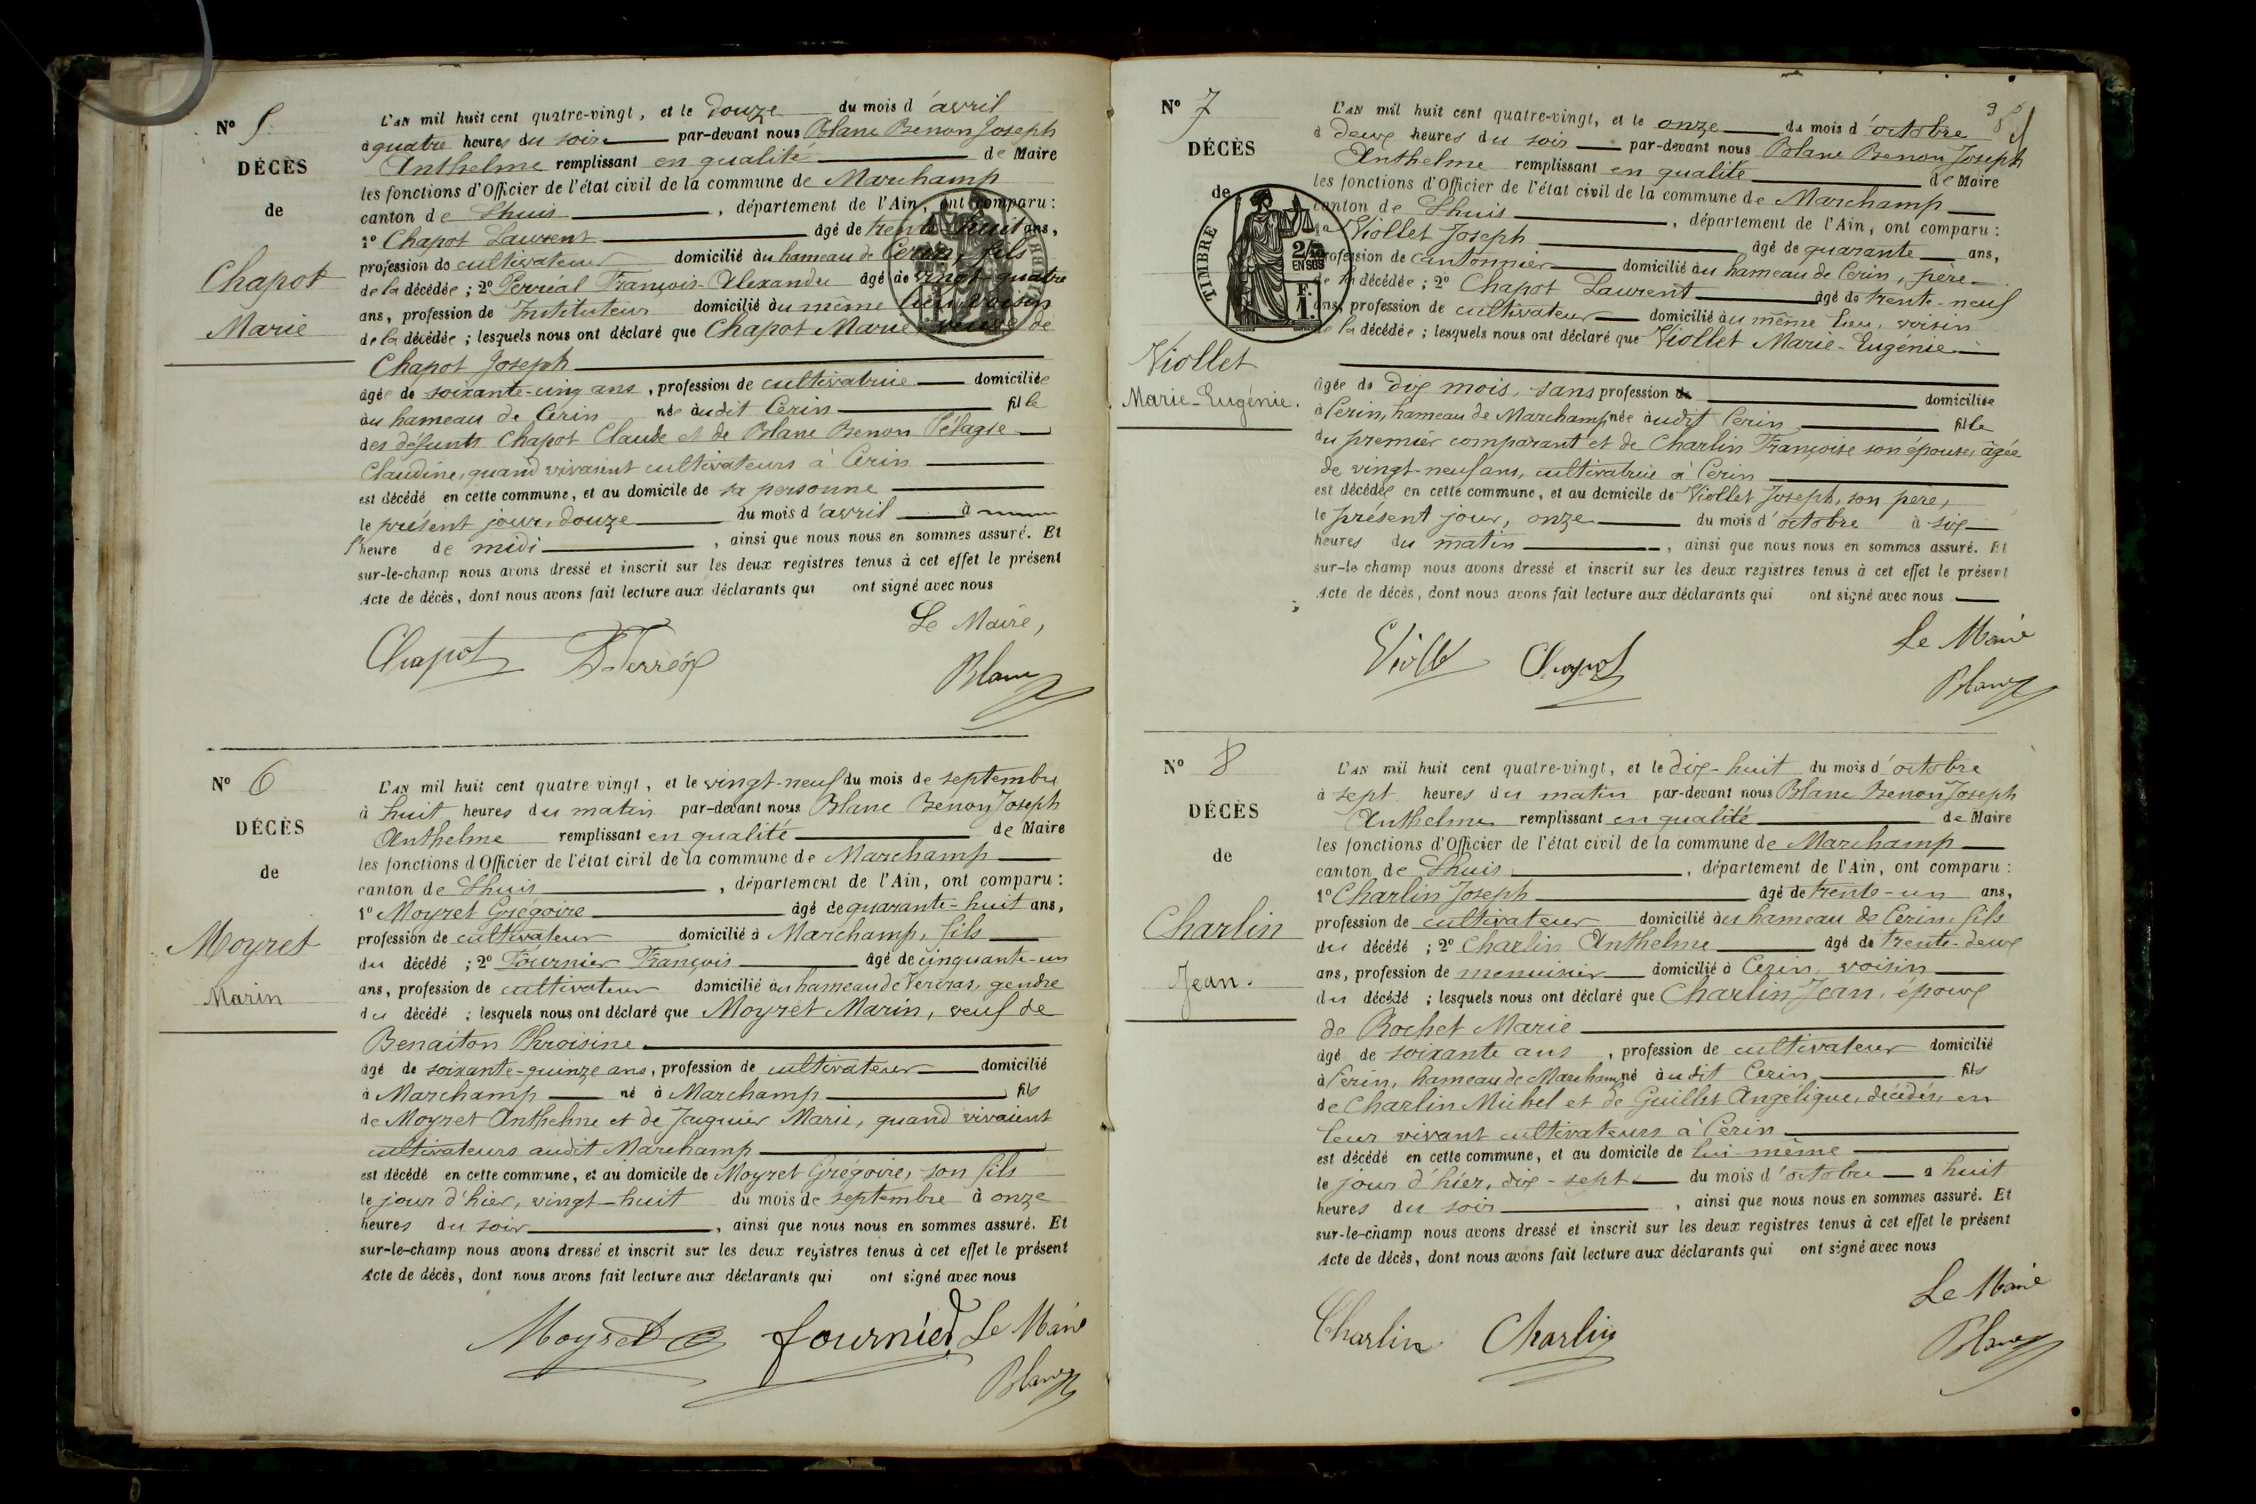 N° 5
DÉCÈS
de
Chapot
Marie
L'AN mil huit cent quatre-vingt, et le douze du mois d'avril
à quatre heures du soir par-devant nous Blanc Benon Joseph
Anthelme remplissant en qualité de Maire
les fonctions d'Officier de l'état civil de la commune de Marchamp
canton de Lhuis, département de l'Ain, ont comparu :
1° Chapot Laurent âgé de trente-huit ans,
profession de cultivateur domicilié au hameau de Cerin, fils
de la décédée ; 2° Perréal François-Alexandre âgé de vingt-quatre
ans, profession de Instituteur domicilié au même lieu, voisin
de la décédée ; lesquels nous ont déclaré que Chapot Marie veuve de
Chapot Joseph
âgée de soixante-cinq ans, profession de cultivatrice domiciliée
au hameau de Cerin née audit Cerin fille
des défunts Chapot Claude et de Blanc Benon Pélagie
Claudine, quand vivaient cultivateurs à Cerin
est décédé en cette commune, et au domicile de sa personne
le présent jour, douze du mois d'avril à
l'heure de midi, ainsi que nous nous en sommes assuré. Et
sur-le-champ nous avons dressé et inscrit sur les deux registres tenus à cet effet le présent
Acte de décès, dont nous avons fait lecture aux déclarants qui ont signé avec nous
Le Maire,
Chapot
Blanc
N° 6
DÉCÈS
de
Moyret
Marin
L'AN mil huit cent quatre vingt, et le vingt-neuf du mois de septembre
à huit heures du matin par-devant nous Blanc Benon Joseph
Anthelme remplissant en qualité de Maire
les fonctions d'Officier de l'état civil de la commune de Marchamp
canton de Lhuis, département de l'Ain, ont comparu :
1° Moyret Grégoire âgé de quarante-huit ans,
profession de cultivateur domicilié à Marchamp, fils
du décédé ; 2° Fournier François âgé de cinquante-un
ans, profession de cultivateur domicilié au hameau de Vercras, gendre
du décédé ; lesquels nous ont déclaré que Moyret Marin, veuf de
Benaiton Phroisine
âgé de soixante-quinze ans, profession de cultivateur domicilié
à Marchamp né à Marchamp fils
de Moyret Anthelme et de Jaquier Marie, quand vivaient
cultivateurs audit Marchamp
est décédé en cette commune, et au domicile de Moyret Grégoire, son fils
le jour d'hier, vingt-huit du mois de septembre à onze
heures du soir, ainsi que nous nous en sommes assuré. Et
sur-le-champ nous avons dressé et inscrit sur les deux registres tenus à cet effet le présent
Acte de décès, dont nous avons fait lecture aux déclarants qui ont signé avec nous
Moyret G fournier Le Maire
Blanc
N° 7
DÉCÈS
de
TIMBRE
2/10
EN SUS
1 F.
Viollet
Marie-Eugénie.
L'AN mil huit cent quatre-vingt, et le onze du mois d'octobre
à deux heures du soir par-devant nous Blanc Benon Joseph
Anthelme remplissant en qualité de Maire
les fonctions d'Officier de l'état civil de la commune de Marchamp
canton de Lhuis, département de l'Ain, ont comparu :
1° Viollet Joseph âgé de quarante ans,
profession de cantonnier domicilié au hameau de Cerin, père
de la décédée ; 2° Chapot Laurent âgé de trente-neuf
ans, profession de cultivateur domicilié au même lieu, voisin
de la décédée ; lesquels nous ont déclaré que Viollet Marie-Eugénie
âgée de dix mois, sans profession de domiciliée
à Cerin, hameau de Marchamp née audit Cerin fille
du premier comparant et de Charlin Françoise son épouse, âgée
de vingt-neuf ans, cultivatrice à Cerin
est décédée en cette commune, et au domicile de Viollet Joseph, son père,
le présent jour, onze du mois d'octobre à six
heures du matin, ainsi que nous nous en sommes assuré. Et
sur-le champ nous avons dressé et inscrit sur les deux registres tenus à cet effet le présent
Acte de décès, dont nous avons fait lecture aux déclarants qui ont signé avec nous
Le Maire
Viollet Chapot
Blanc
N° 8
DÉCÈS
de
Charlin
Jean.
L'AN mil huit cent quatre-vingt, et le dix-huit du mois d'octobre
à sept heures du matin par-devant nous Blanc Benon Joseph
Anthelme remplissant en qualité de Maire
les fonctions d'Officier de l'état civil de la commune de Marchamp
canton de Lhuis, département de l'Ain, ont comparu :
1° Charlin Joseph âgé de trente-un ans,
profession de cultivateur domicilié au hameau de Cerin, fils
du décédé ; 2° Charlin Anthelme âgé de trente-deux
ans, profession de menuisier domicilié à Cerin, voisin
du décédé ; lesquels nous ont déclaré que Charlin Jean, époux
de Rochet Marie
âgé de soixante ans, profession de cultivateur domicilié
à Cerin, hameau de Marchamp né audit Cerin fils
de Charlin Michel et de Guillet Angélique, décédés, en
leur vivant cultivateurs à Cerin
est décédé en cette commune, et au domicile de lui-même
le jour d'hier, dix-sept du mois d'octobre à huit
heures du soir, ainsi que nous nous en sommes assuré. Et
sur-le-champ nous avons dressé et inscrit sur les deux registres tenus à cet effet le présent
Acte de décès, dont nous avons fait lecture aux déclarants qui ont signé avec nous
Le Maire
Charlin Charlin
Blanc